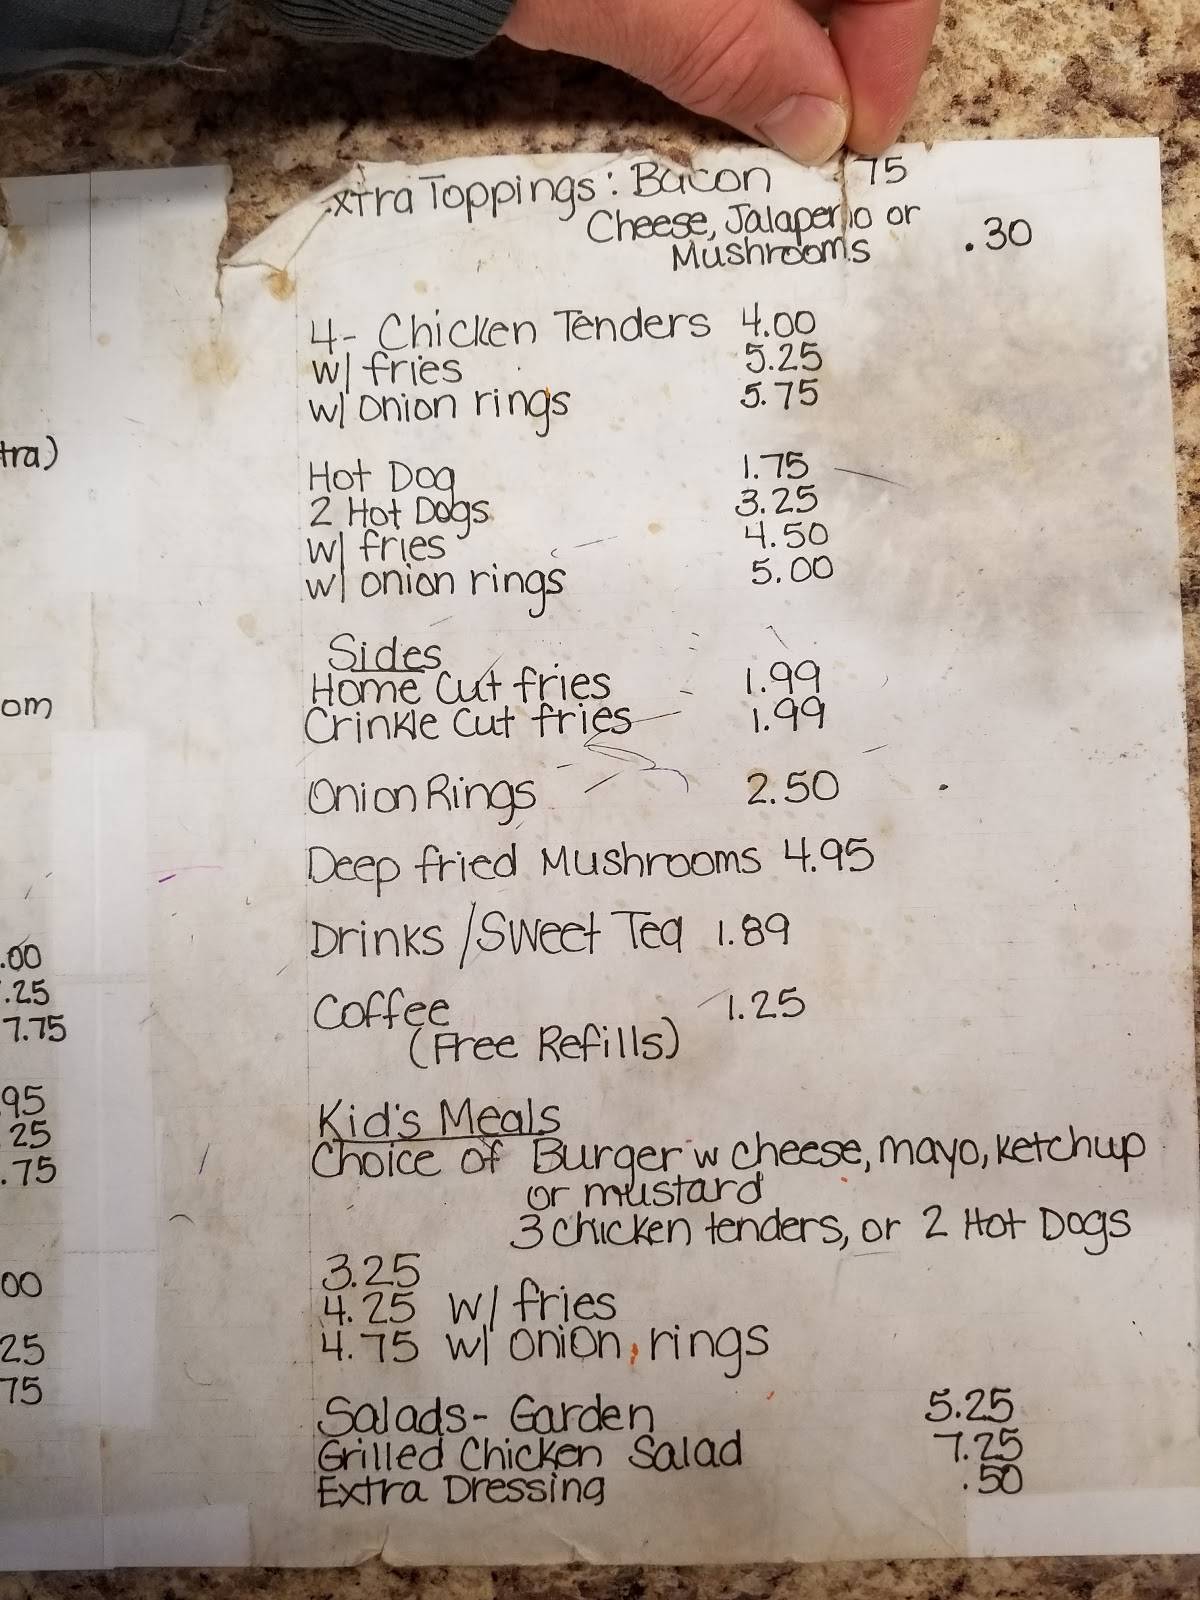 xtra Toppings: Bacon 75
Cheese, Jalapeno or
Mushrooms .30
4- Chicken Tenders 4.00
w/ fries 5.25
w/ onion rings 5.75
tra)
Hot Dog 1.75
2 Hot Dogs 3.25
w/ fries 4.50
w/ onion rings 5.00
Sides
Home Cut fries 1.99
om
Crinkle Cut fries 1.99
Onion Rings 2.50
Deep fried Mushrooms 4.95
Drinks /Sweet Tea 1.89
.00
.25
7.75
Coffee 1.25
(Free Refills)
95
25
.75
Kid's Meals
Choice of Burger w cheese, mayo, ketchup
or mustard
3 chicken tenders, or 2 Hot Dogs
00
25
75
3.25
4.25 w/ fries
4.75 w/ onion rings
Salads- Garden 5.25
Grilled Chicken Salad 7.25
Extra Dressing .50